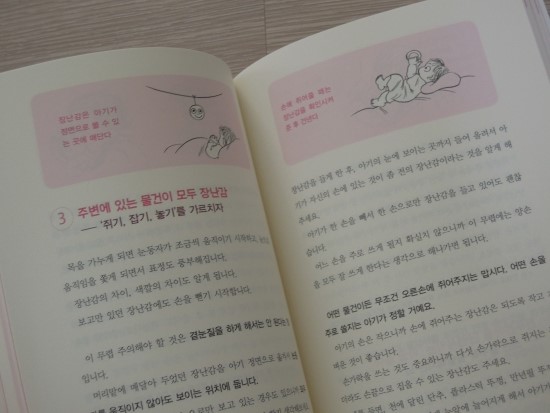 장난감은 아기가
정면으로 볼 수 있
는 곳에 매단다
3 주변에 있는 물건이 모두 장난감
— '쥐기, 잡기, 놓기'를 가르치자
목을 가누게 되면 눈동자가 조금씩 움직이기 시작하고,
움직임을 쫓게 되면서 표정도 풍부해집니다.
장난감의 차이, 색깔의 차이도 알게 됩니다.
보고만 있던 장난감에도 손을 뻗기 시작합니다.
이 무렵 주의해야 할 것은 곁눈질을 하게 해서는 안 된다는
입니다.
머리맡에 매달아 두었던 장난감을 아기 정면으로
를 움직이지 않아도 보이는 위치에 둡니다.
손에 쥐여줄 때는
장난감을 확인시켜
준 후 건넨다
장난감을 들게 한 후, 아기의 눈에 보이는 곳까지 들어 올려서 아
기가 자신의 손에 있는 것이 좀 전의 장난감이라는 것을 알게 해
주세요.
아기가 한 손을 빼서 한 손으로만 장난감을 들고 있어도 괜찮
습니다.
어느 손을 주로 쓰게 될지 확실하지 않으니까 이 무렵에는 양손
을 모두 잘 쓰게 한다는 생각으로 해나가면 됩니다.
어떤 물건이든 무조건 오른손에 쥐어주지는 맙시다. 어떤 손을
주로 쓸지는 아기가 정할 거예요.
아기의 손은 작으니까 손에 쥐어주는 장난감은 되도록 작고
벼운 것이 좋습니다.
손가락을 쓰는 것도 중요하니까 다섯 손가락으로 쥐는
이라도 손끝으로 집을 수 있는 장난감도 주세요.